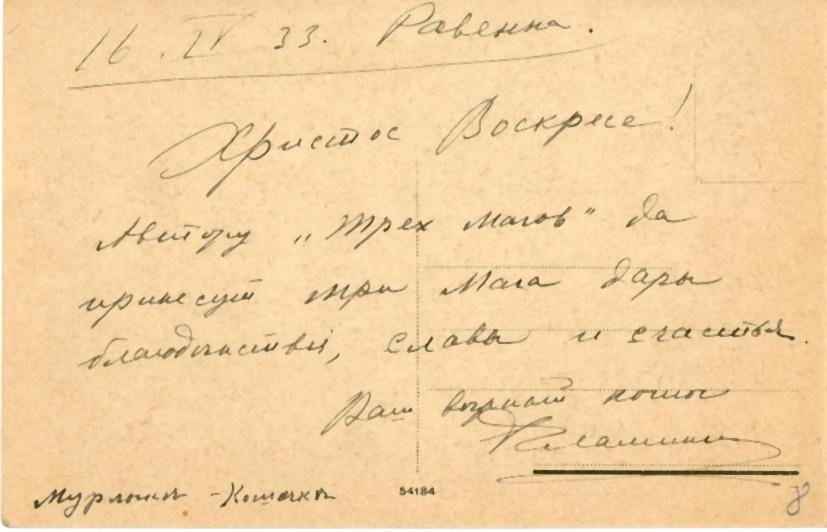 16. IV 33. Равенна.
Христос Воскресе!
Автору „Трех магов" да
принесут три Мага дары
благоденствия, славы и счастья.
Ваш верный
Мурлыка - Кошечка
54184
8